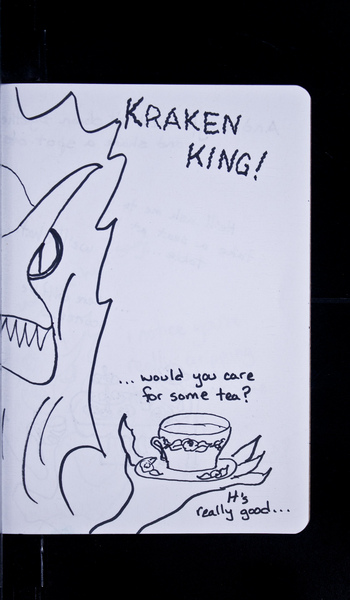 KRAKEN
KING!
... would you care
for some tea?
It's
really good...